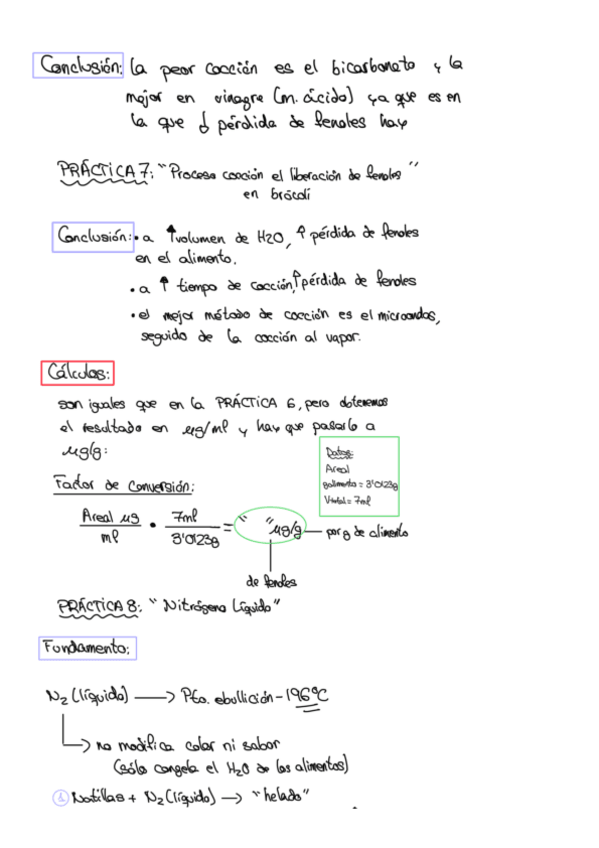 Conclusión: la peor cocción es el bicarbonato y la
mejor en vinagre (m. ácido) ya que es en
la que ↓ pérdida de fenoles hay
PRÁCTICA 7: "Proceso cocción el liberación de fenoles"
en brócoli
Conclusión: • a ↑ volumen de H2O, ↑ pérdida de fenoles
en el alimento.
• a ↑ tiempo de cocción, ↑ pérdida de fenoles
• el mejor método de cocción es el microondas,
seguido de la cocción al vapor.
Cálculos:
son iguales que en la PRÁCTICA 6, pero obtenemos
el resultado en µg/ml y hay que pasarlo a
µg/g:
Datos:
Areal
galimento = 3'0123g
Vtotal = 7ml
Factor de conversión:
Areal µg / ml • 7ml / 3'0123g = " " µg/g — por g de alimento
de fenoles
PRÁCTICA 8: "Nitrógeno Líquido"
Fundamento:
N2 (líquido) → Pto. ebullición -196ºC
→ no modifica color ni sabor
(sólo congela el H2O de los alimentos)
① Natillas + N2 (líquido) → "helado"